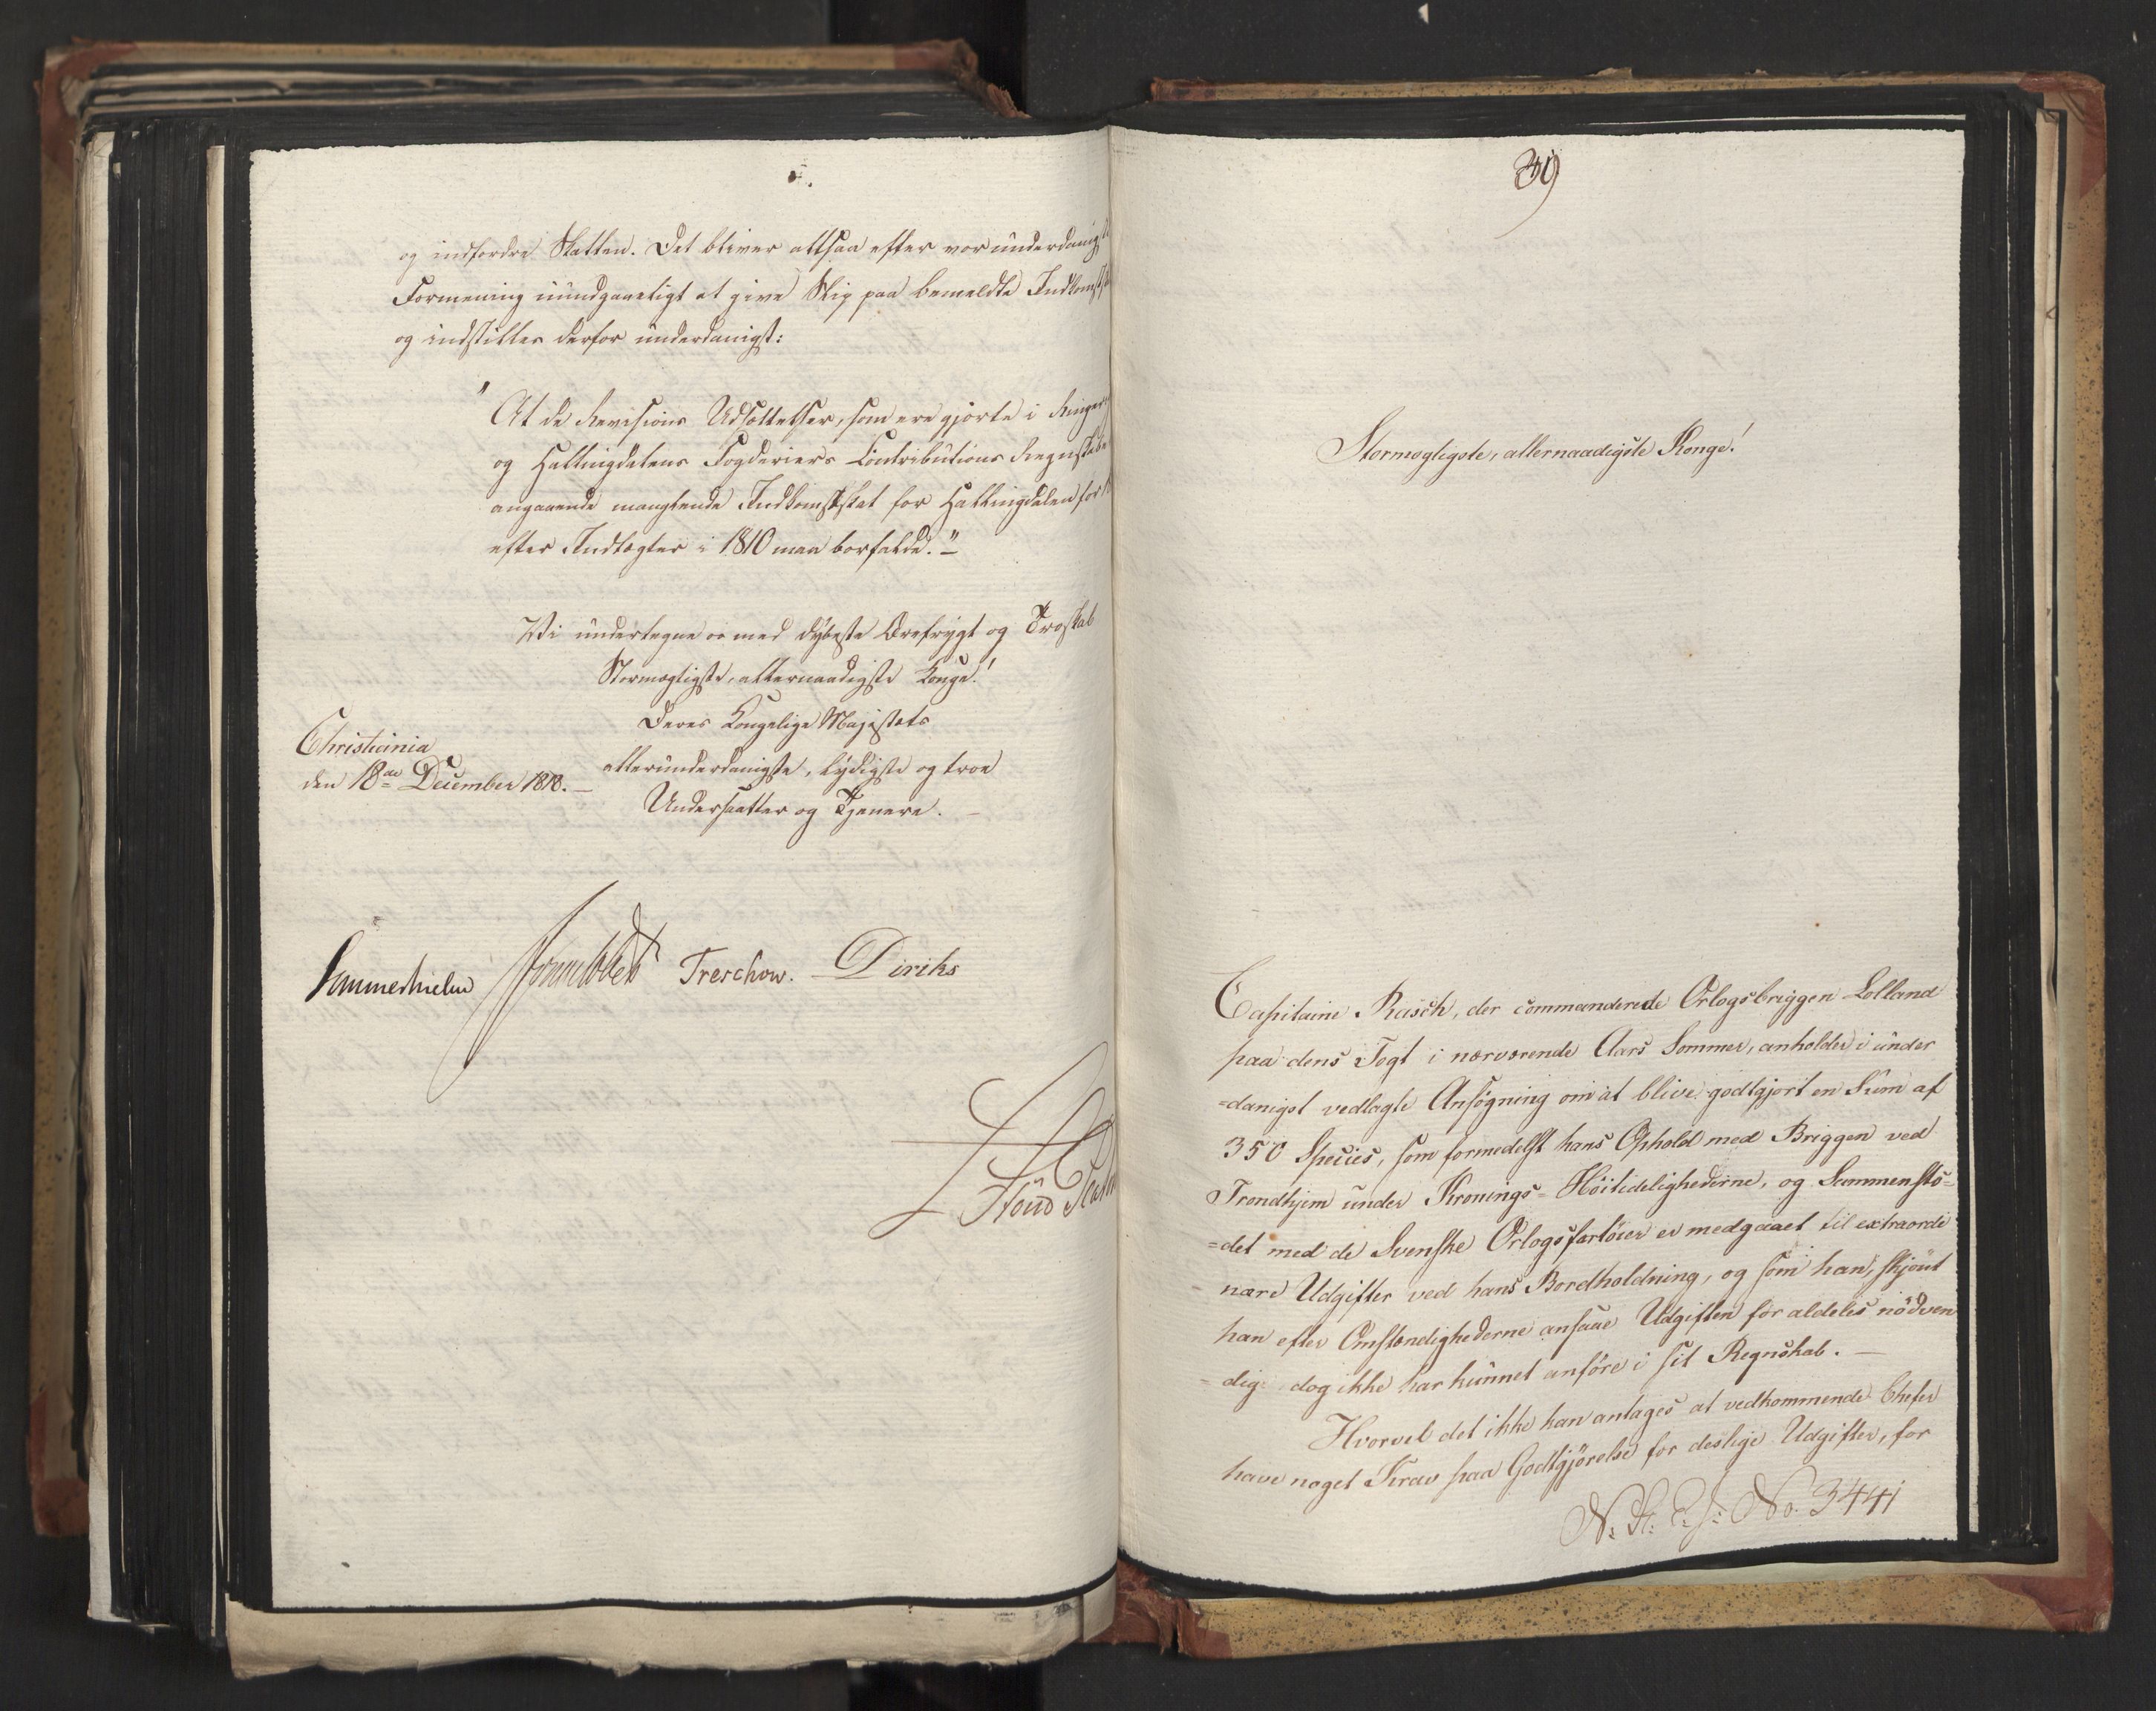 og indfordre Skatten. Det bliver altsaa efter vor underdanigste
Formening uundgaaeligt at give Slip paa bemeldte Indkomstskat
og indstilles derfor underdanigst:
"At de Revisions Udsættelser, som ere gjorte i Ringeriges
og Hallingdalens Fogderiers Contributions Regnskaber
angaaende manglende Indkomstskat for Hallingdalen for
efter Indtægter i 1810 maa bortfalde."
Vi undertegne os med dybeste Ærefrygt og Troskab
Stormægtigste, allernaadigste Konge!
Deres Kongelige Majestæts
Christiania
den 18de December 1818.
allerunderdanigste, lydigste og troe
Undersaatter og Tjenere.
Sommerhielm Treschow. Diriks
39
Stormægtigste, allernaadigste Konge!
Capitaine Rasch, der commanderede Orlogsbriggen Lolland
paa dens Togt i nærværende Aars Sommer, anholder i under
=danigst vedlagte Ansøgning om at blive godtgjort en Sum af
350 Species, som formedelst hans Ophold med Briggen ved
Trondhjem under Kronings=Høitidelighederne, og Sammenstø=
=det med de Svenske Orlogsfartøier er medgaaet til extraordi
nære Udgifter ved hans Bordholdning, og som han, skjønt
han efter Omstændighederne ansaae Udgiften for aldeles nødven
=dig dog ikke har kunnet anføre i sit Regnskab.
Hvorvel det ikke kan antages at vedkommende Chefer
have noget Krav paa Godtgjørelse for deslige Udgifter, for
No. 3441